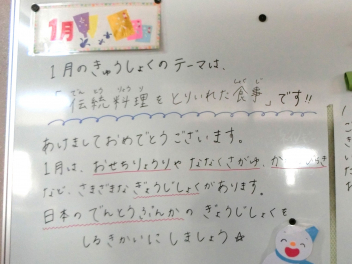 1月
1月のきゅうしょくのテーマは、
「伝統料理をとりいれた食事」です!!
あけましておめでとうございます。
1月は、おせちりょうりやななくさがゆ、
など、さまざまなぎょうじしょくがあります。
日本のでんとうぶんかのぎょうじしょくを
しるきかいにしましょう☆